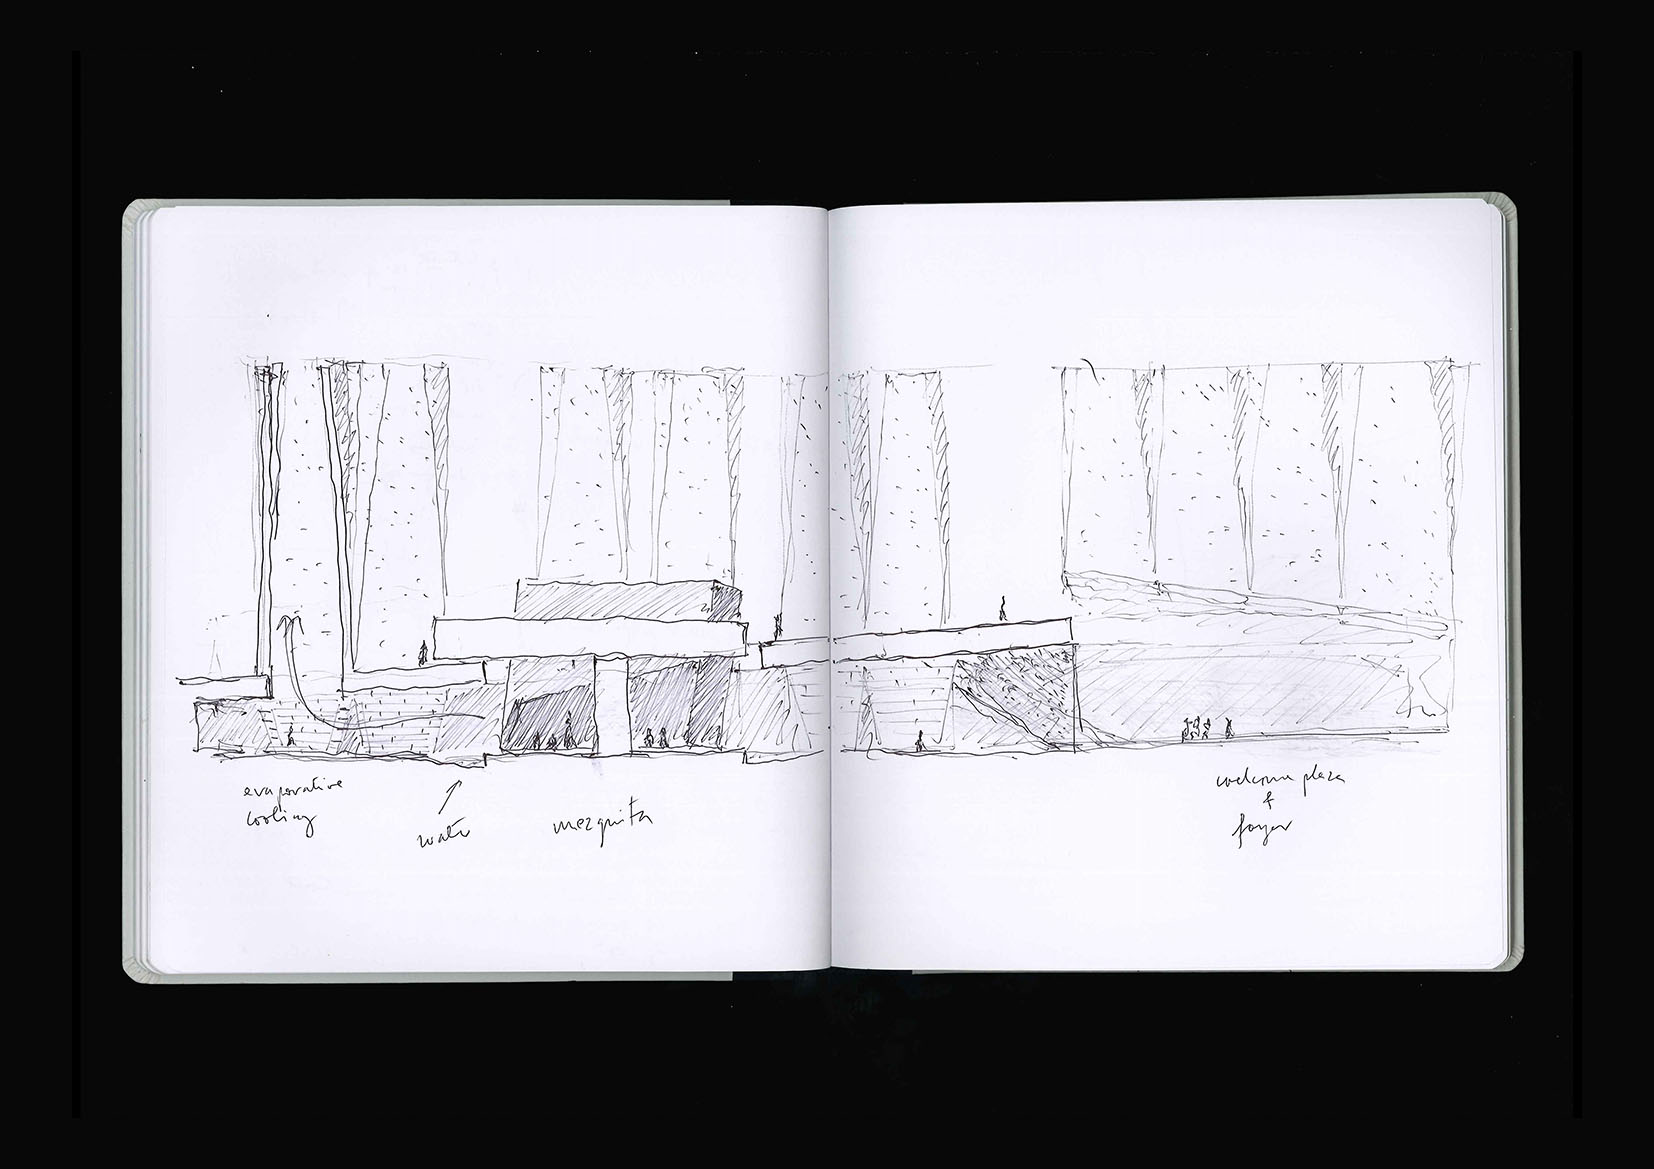 evaporative
cooling
water
mezquita
welcome plaza
&
foyer